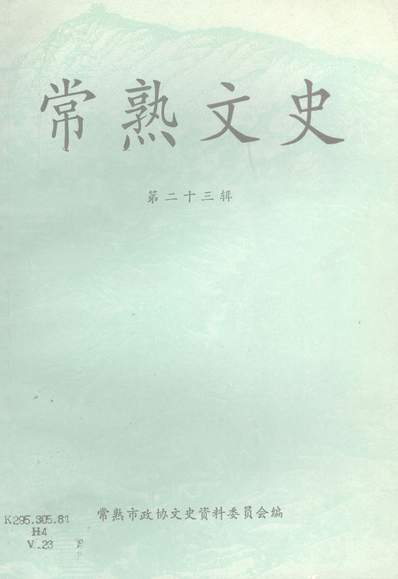 常熟文史
第二十三辑
常熟市政协文史资料委员会编
K295.305.81
H4
V.23